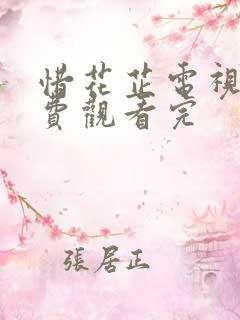 惜花芷電視
費觀看完
張居正